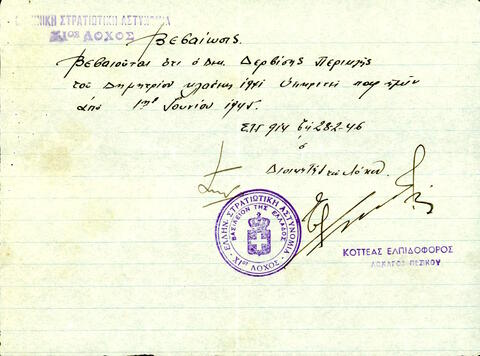 ΕΛΛΗΝΙΚΗ ΣΤΡΑΤΙΩΤΙΚΗ ΑΣΤΥΝΟΜΙΑ
ΧΙος ΛΟΧΟΣ
Βεβαίωσις
Βεβαιούται ότι ο Δεκ. Δερβίσης Περικλής
του Δημητρίου κλάσεως 1941 υπηρετεί παρ' ημίν
από 1ης Ιουνίου 1945.
ΣΤΓ 914 τη 28-2-46
ο
Διοικητής του Λόχου
ΧΙος ΕΛΛΗΝ. ΣΤΡΑΤΙΩΤΙΚΗ ΑΣΤΥΝΟΜΙΑ ΛΟΧΟΣ
ΒΑΣΙΛΕΙΟΝ ΤΗΣ ΕΛΛΑΔΟΣ
ΚΟΤΤΕΑΣ ΕΛΠΙΔΟΦΟΡΟΣ
ΛΟΧΑΓΟΣ ΠΕΖΙΚΟΥ